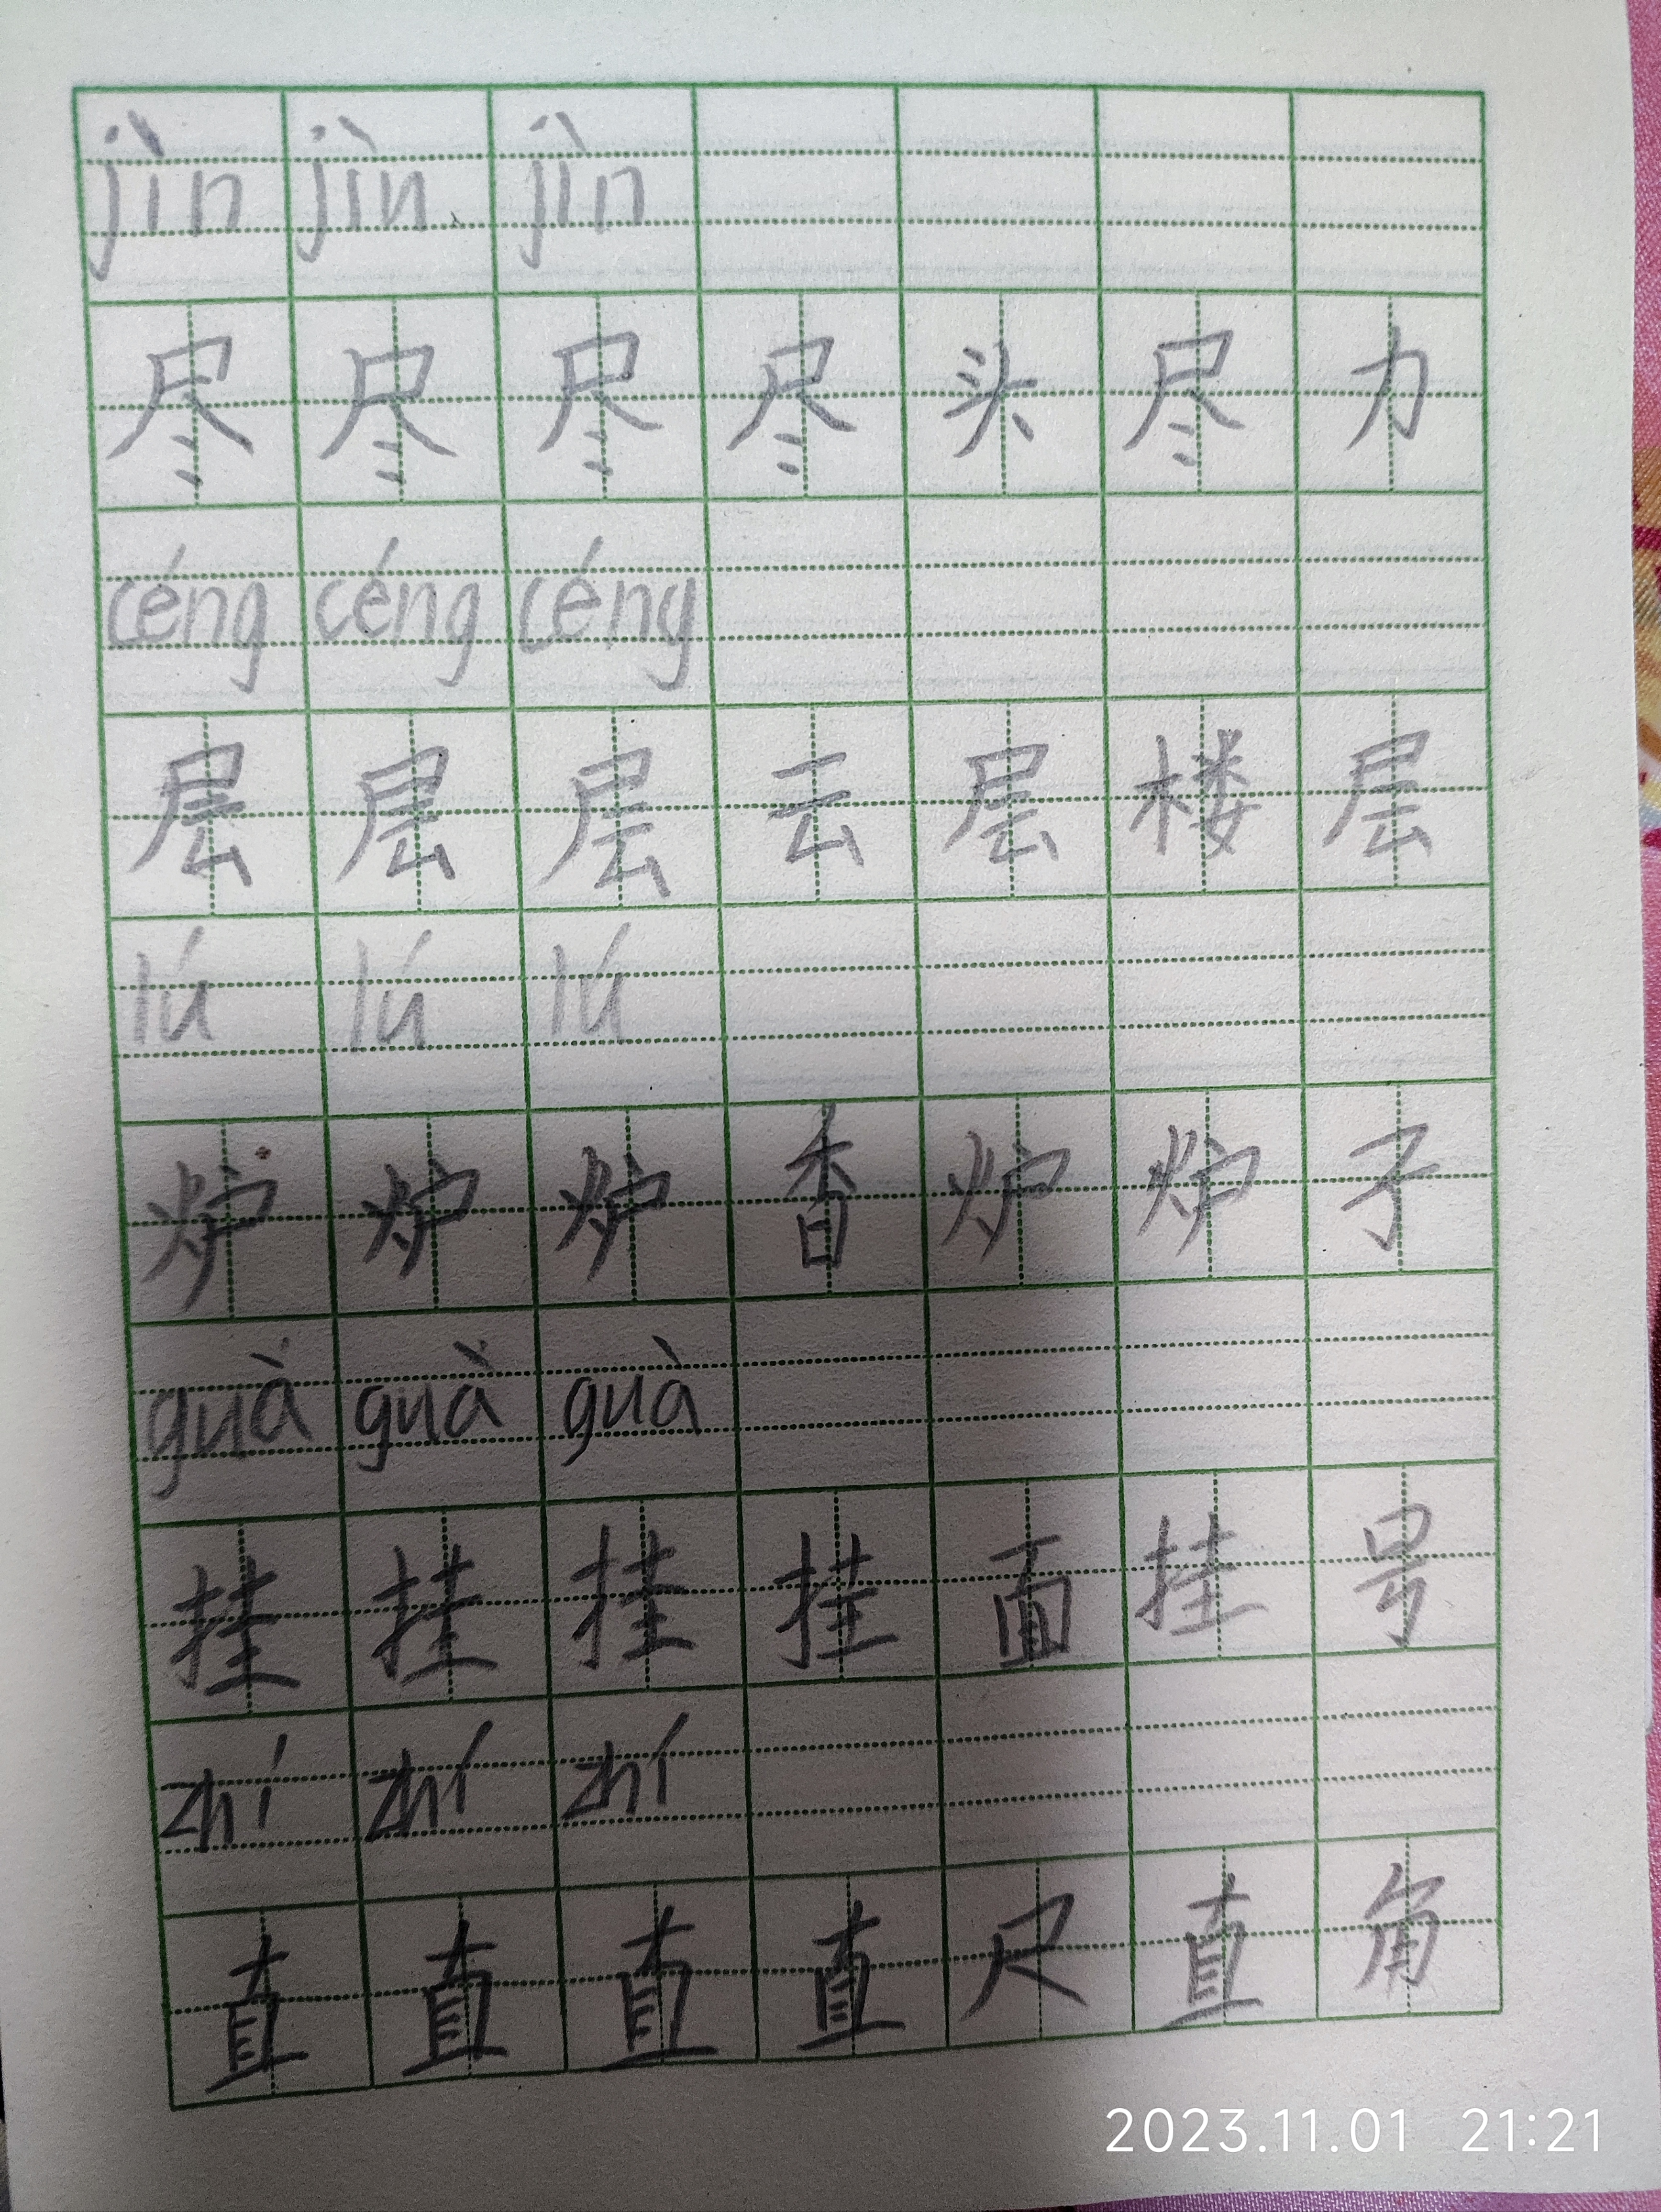 jìn jìn jìn
尽 尽 尽 尽 头 尽 力
céng céng céng
层 层 层 云 层 楼 层
lú lú lú
炉 炉 炉 香 炉 炉 子
guà guà guà
挂 挂 挂 挂 面 挂 号
zhí zhí zhí
直 直 直 直 尺 直 角
2023.11.01 21:21